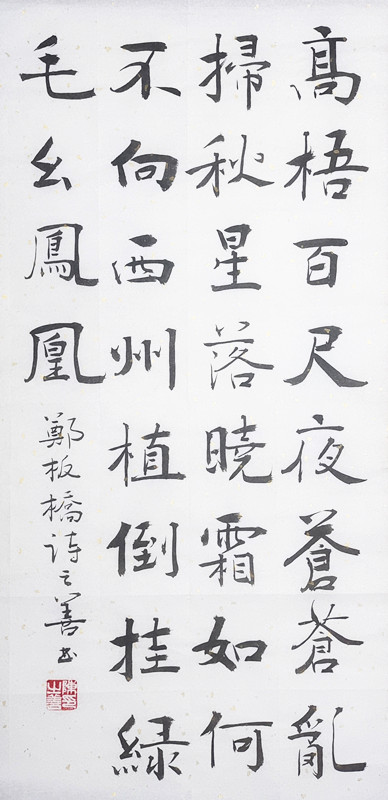 髙梧百尺夜蒼蒼亂
掃秋星落曉霜如何
不向西州植倒挂緑
毛幺鳳凰
鄭板橋詩之善书